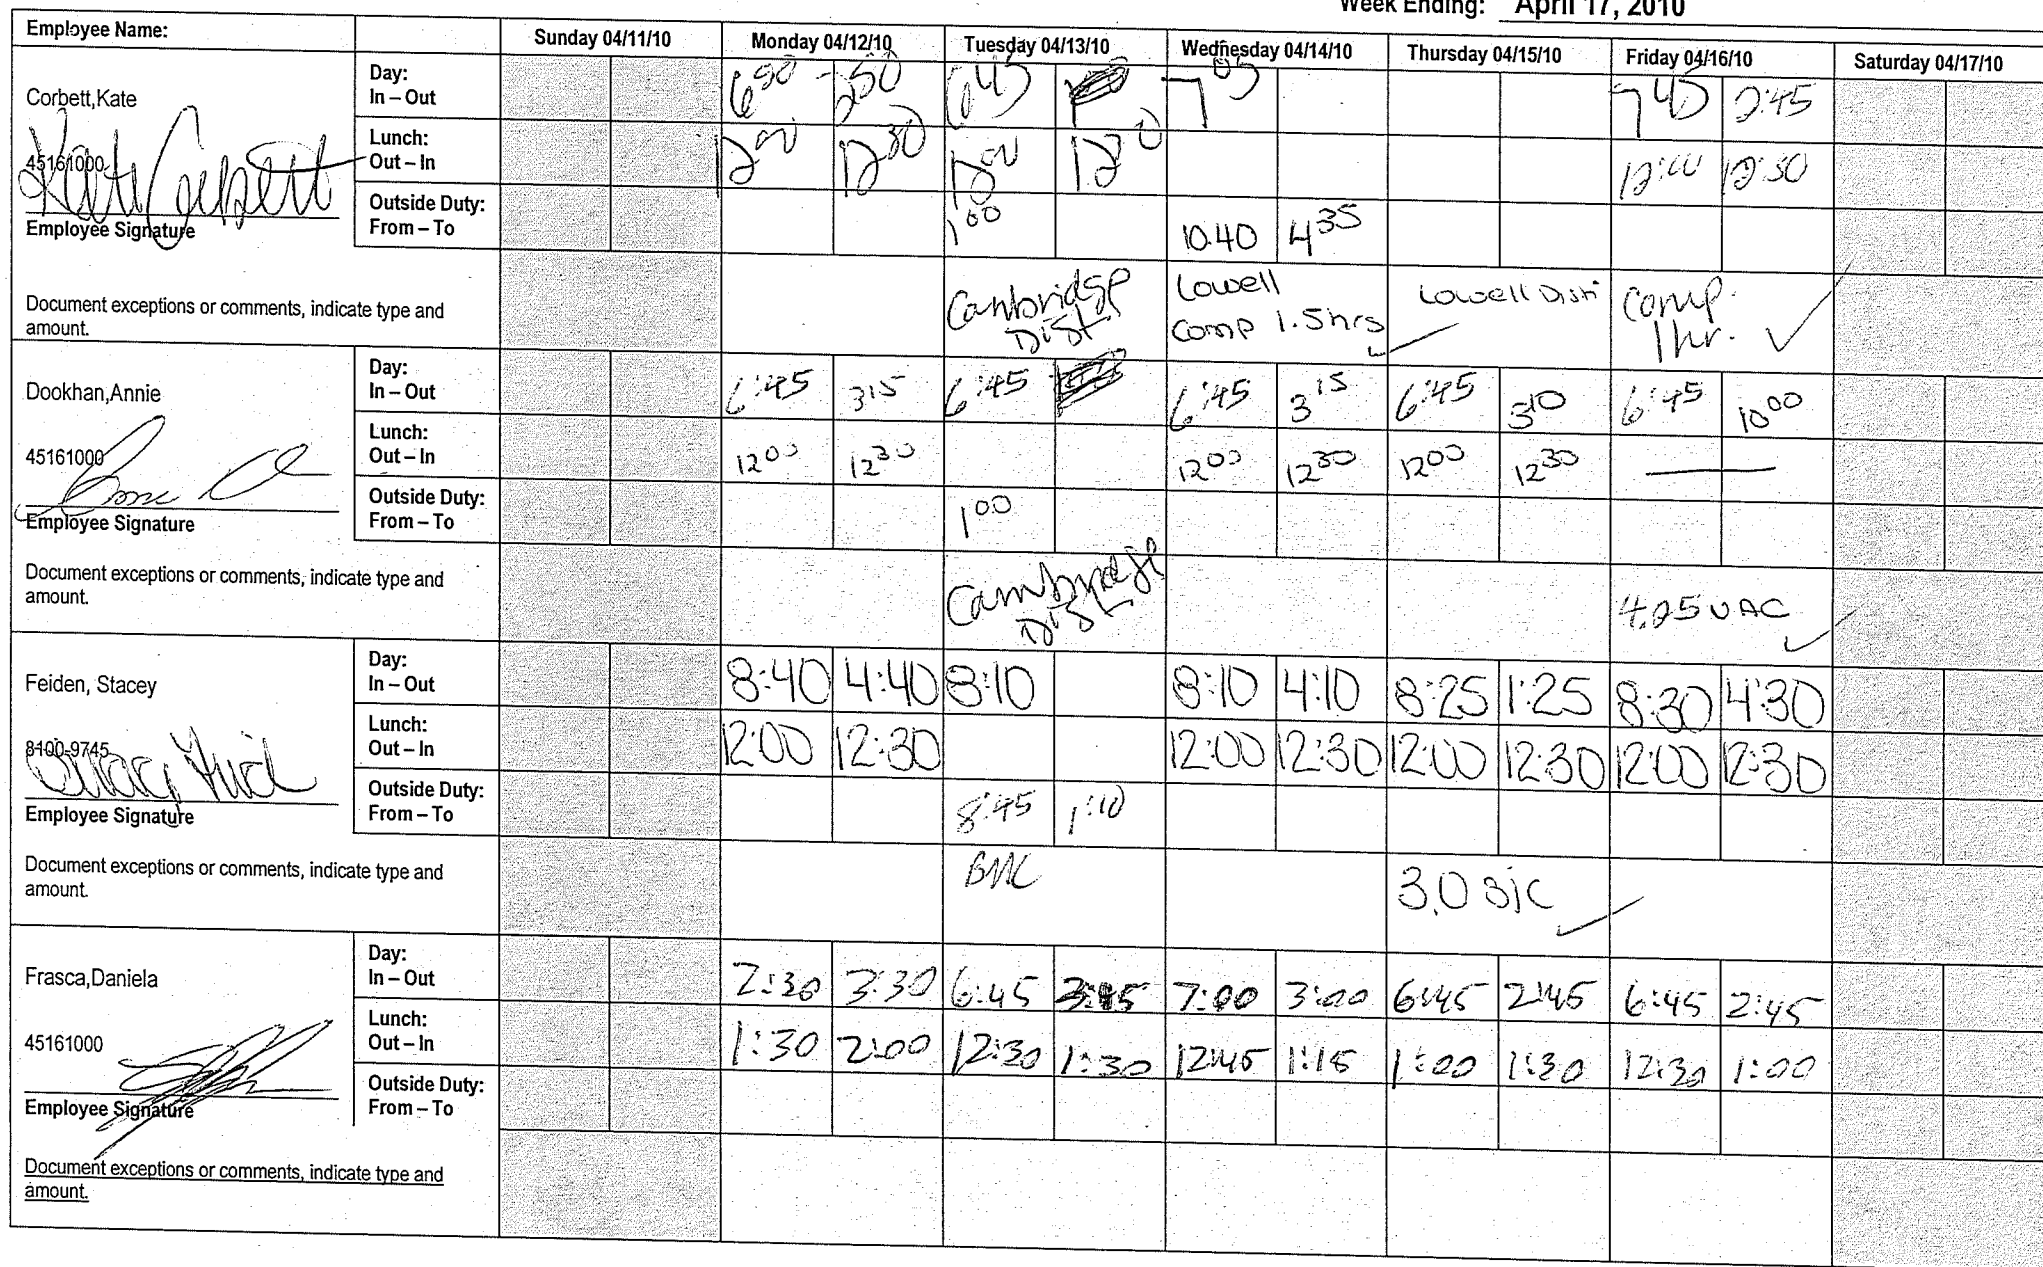 Week Ending: April 17, 2010
Employee Name: Sunday 04/11/10 Monday 04/12/10 Tuesday 04/13/10 Wednesday 04/14/10 Thursday 04/15/10 Friday 04/16/10 Saturday 04/17/10
Corbett,Kate
45161000
Kate Corbett
Employee Signature
Day:
In – Out 645 705 745 2:45
Lunch:
Out – In 1200 1230 1200 1230 12:00 12:30
Outside Duty:
From – To 100 10.40 435
Document exceptions or comments, indicate type and
amount.
Cambridge
Dist.
Lowell
Comp 1.5hrs
Lowell Dist
Comp.
1hr.
Dookhan,Annie
45161000
Employee Signature
Day:
In – Out 6:45 315 6:45 6:45 315 6:45 310 6:45 1000
Lunch:
Out – In 1200 1230 1200 1230 1200 1230
Outside Duty:
From – To 100
Document exceptions or comments, indicate type and
amount.
Cambridge
Dist
4.25 VAC
Feiden, Stacey
8100-9745
Employee Signature
Day:
In – Out 8:40 4:40 8:10 8:10 4:10 8:25 1:25 8:30 4:30
Lunch:
Out – In 12:00 12:30 12:00 12:30 12:00 12:30 12:00 12:30
Outside Duty:
From – To 8:45 1:10
Document exceptions or comments, indicate type and
amount.
BMC
3.0 SIC
Frasca,Daniela
45161000
Employee Signature
Day:
In – Out 7:30 3:30 6:45 7:00 3:00 6:45 2:45 6:45 2:45
Lunch:
Out – In 1:30 2:00 12:30 1:30 12:45 1:15 1:00 1:30 12:30 1:00
Outside Duty:
From – To
Document exceptions or comments, indicate type and
amount.